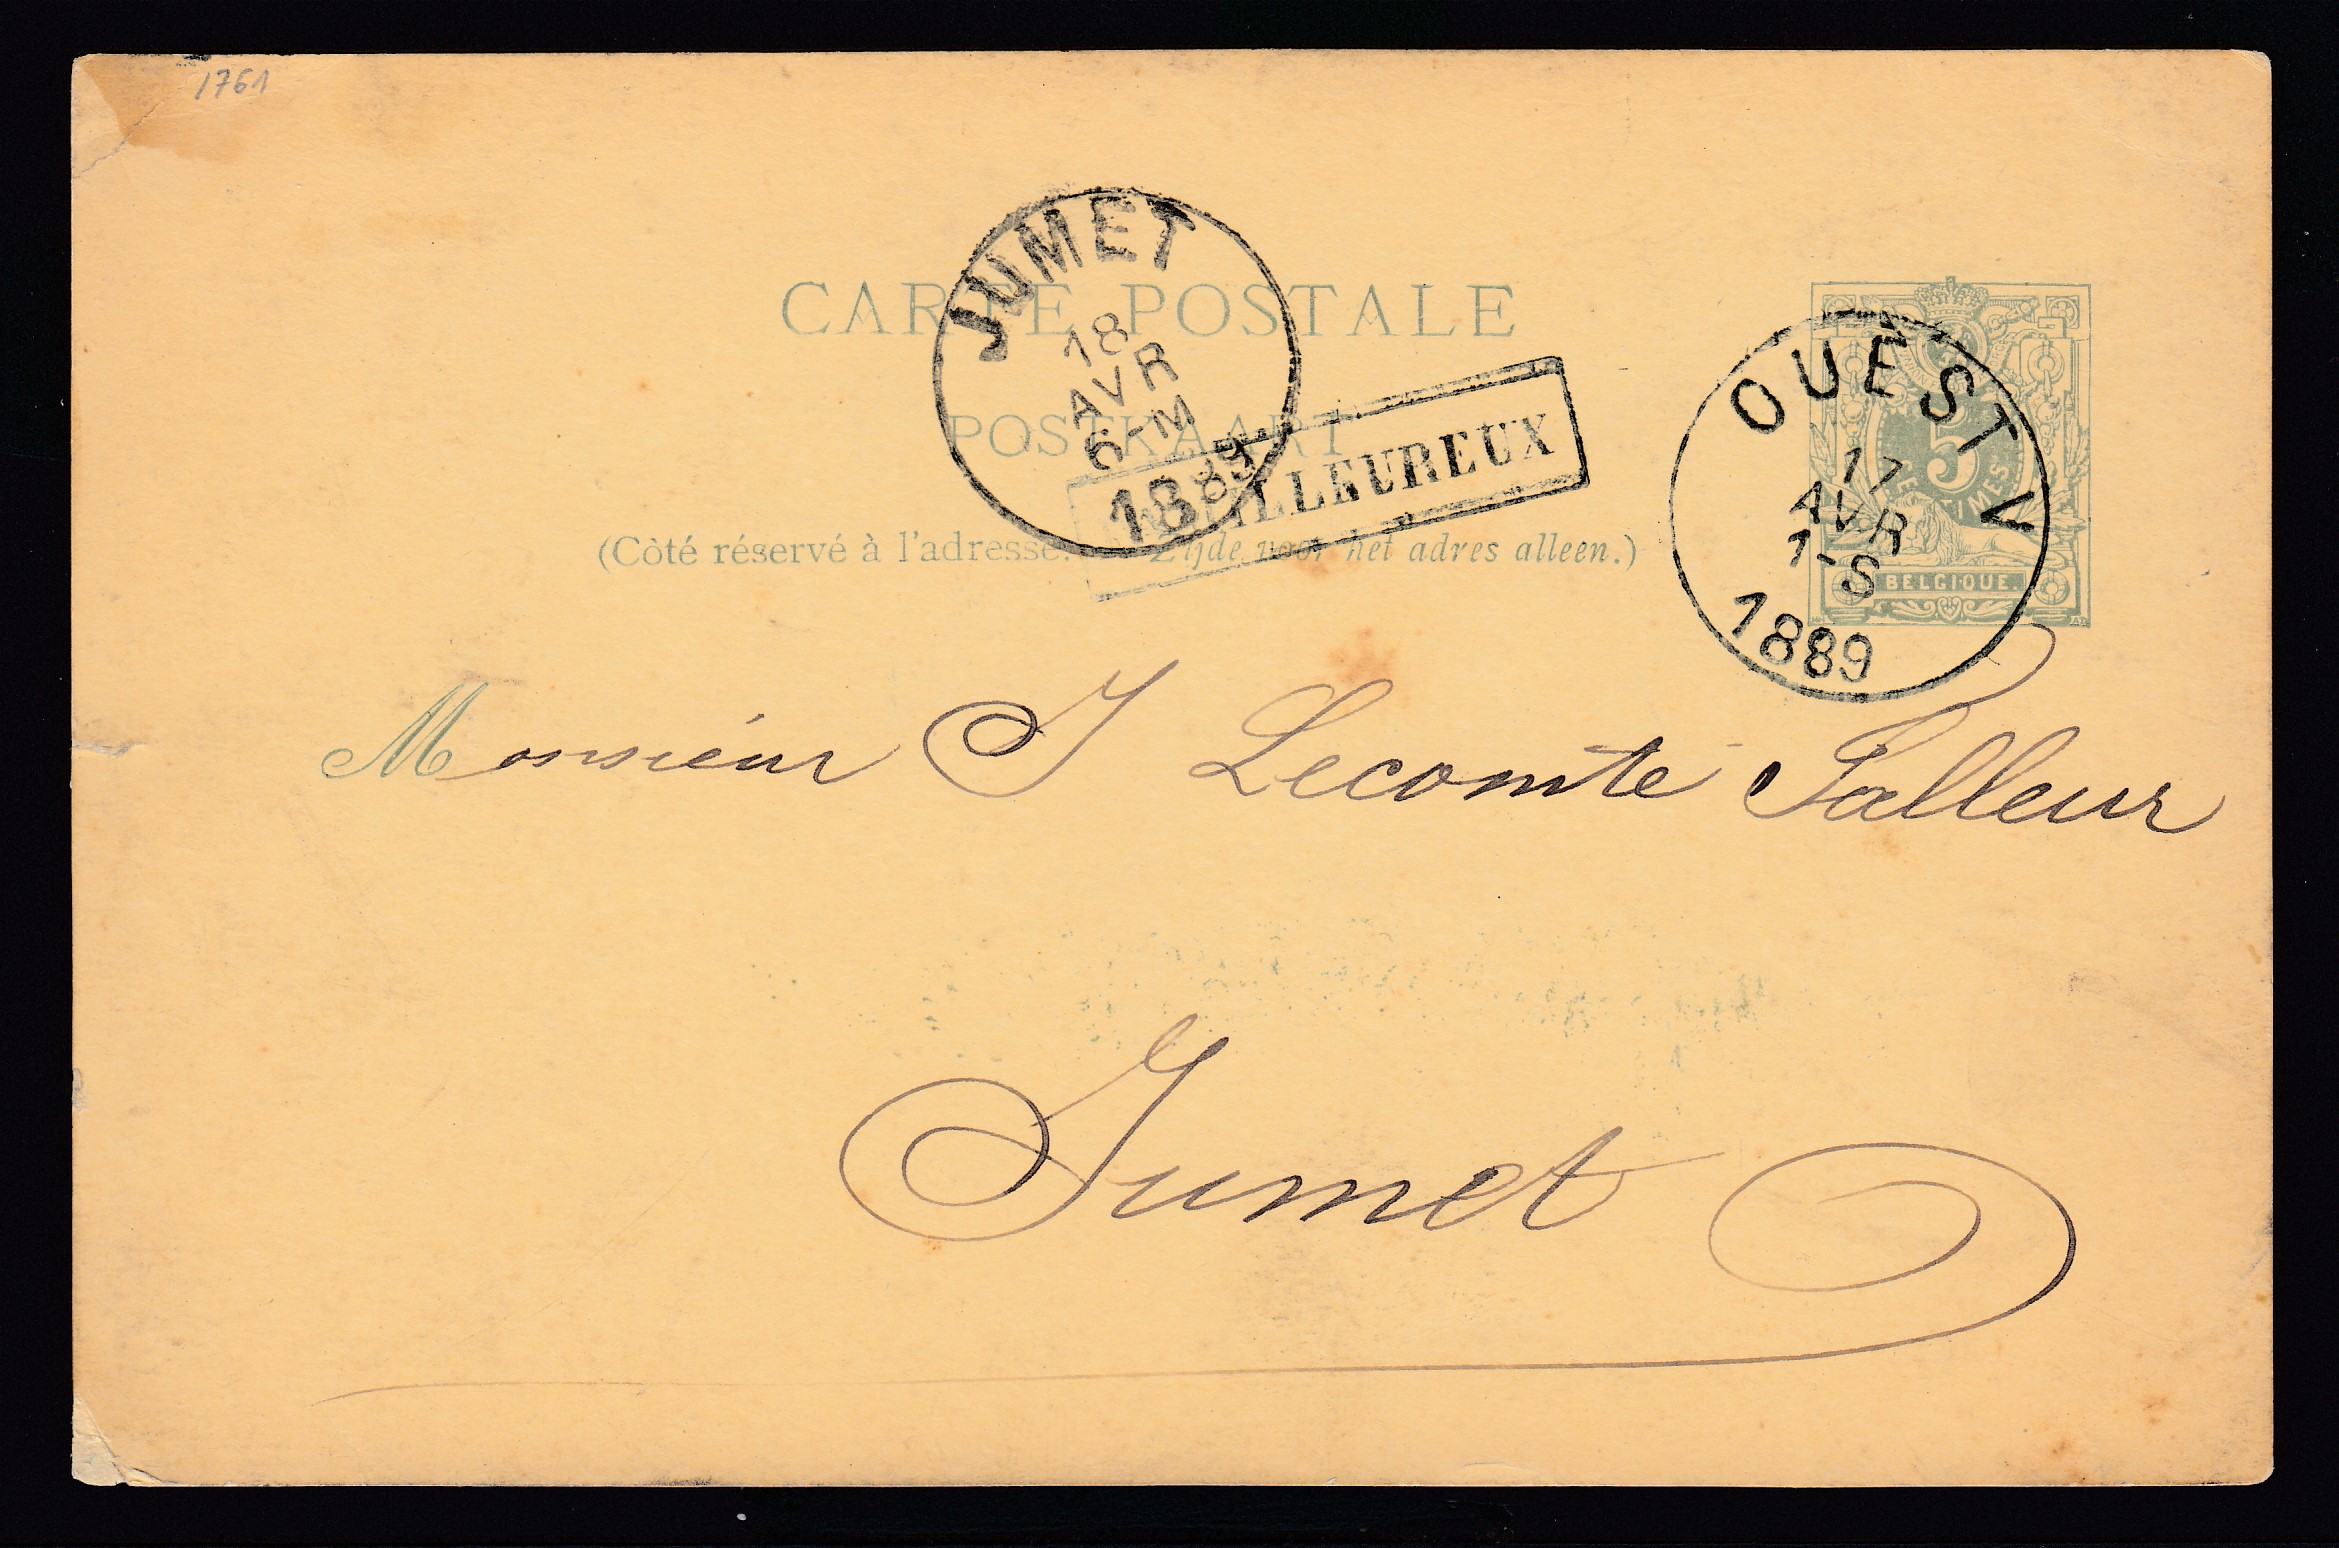 1761
JUMET
18
AVR
6-M
1889
CARTE POSTALE
POSTKAART
(Côté réservé à l'adresse. Zijde voor het adres alleen.)
MEILLEUREUX
OUEST V
17
AVR
1-S
1889
5
CENTIMES
BELGIQUE
Monsieur J Lecomte Falleur
Jumet